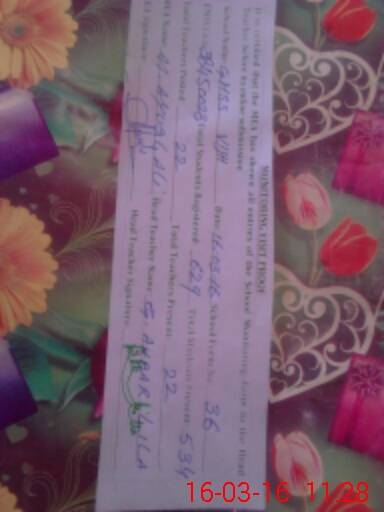 MONITORING VISIT PROOF
It is certified that the MEA has shown all entries of the School Monitoring Form to the Head
Teacher before its online submission.
School Name: GHSS VIJH Date: 16-03-16 School Form No: 36
EMIS Code: Total Students Registered: 629 Total Students Present: 534
Total Teachers Posted: 22 Total Teachers Present: 22
MEA Name: Head Teacher Name:
MEA Signature: Head Teacher Signature:
16-03-16 11:28